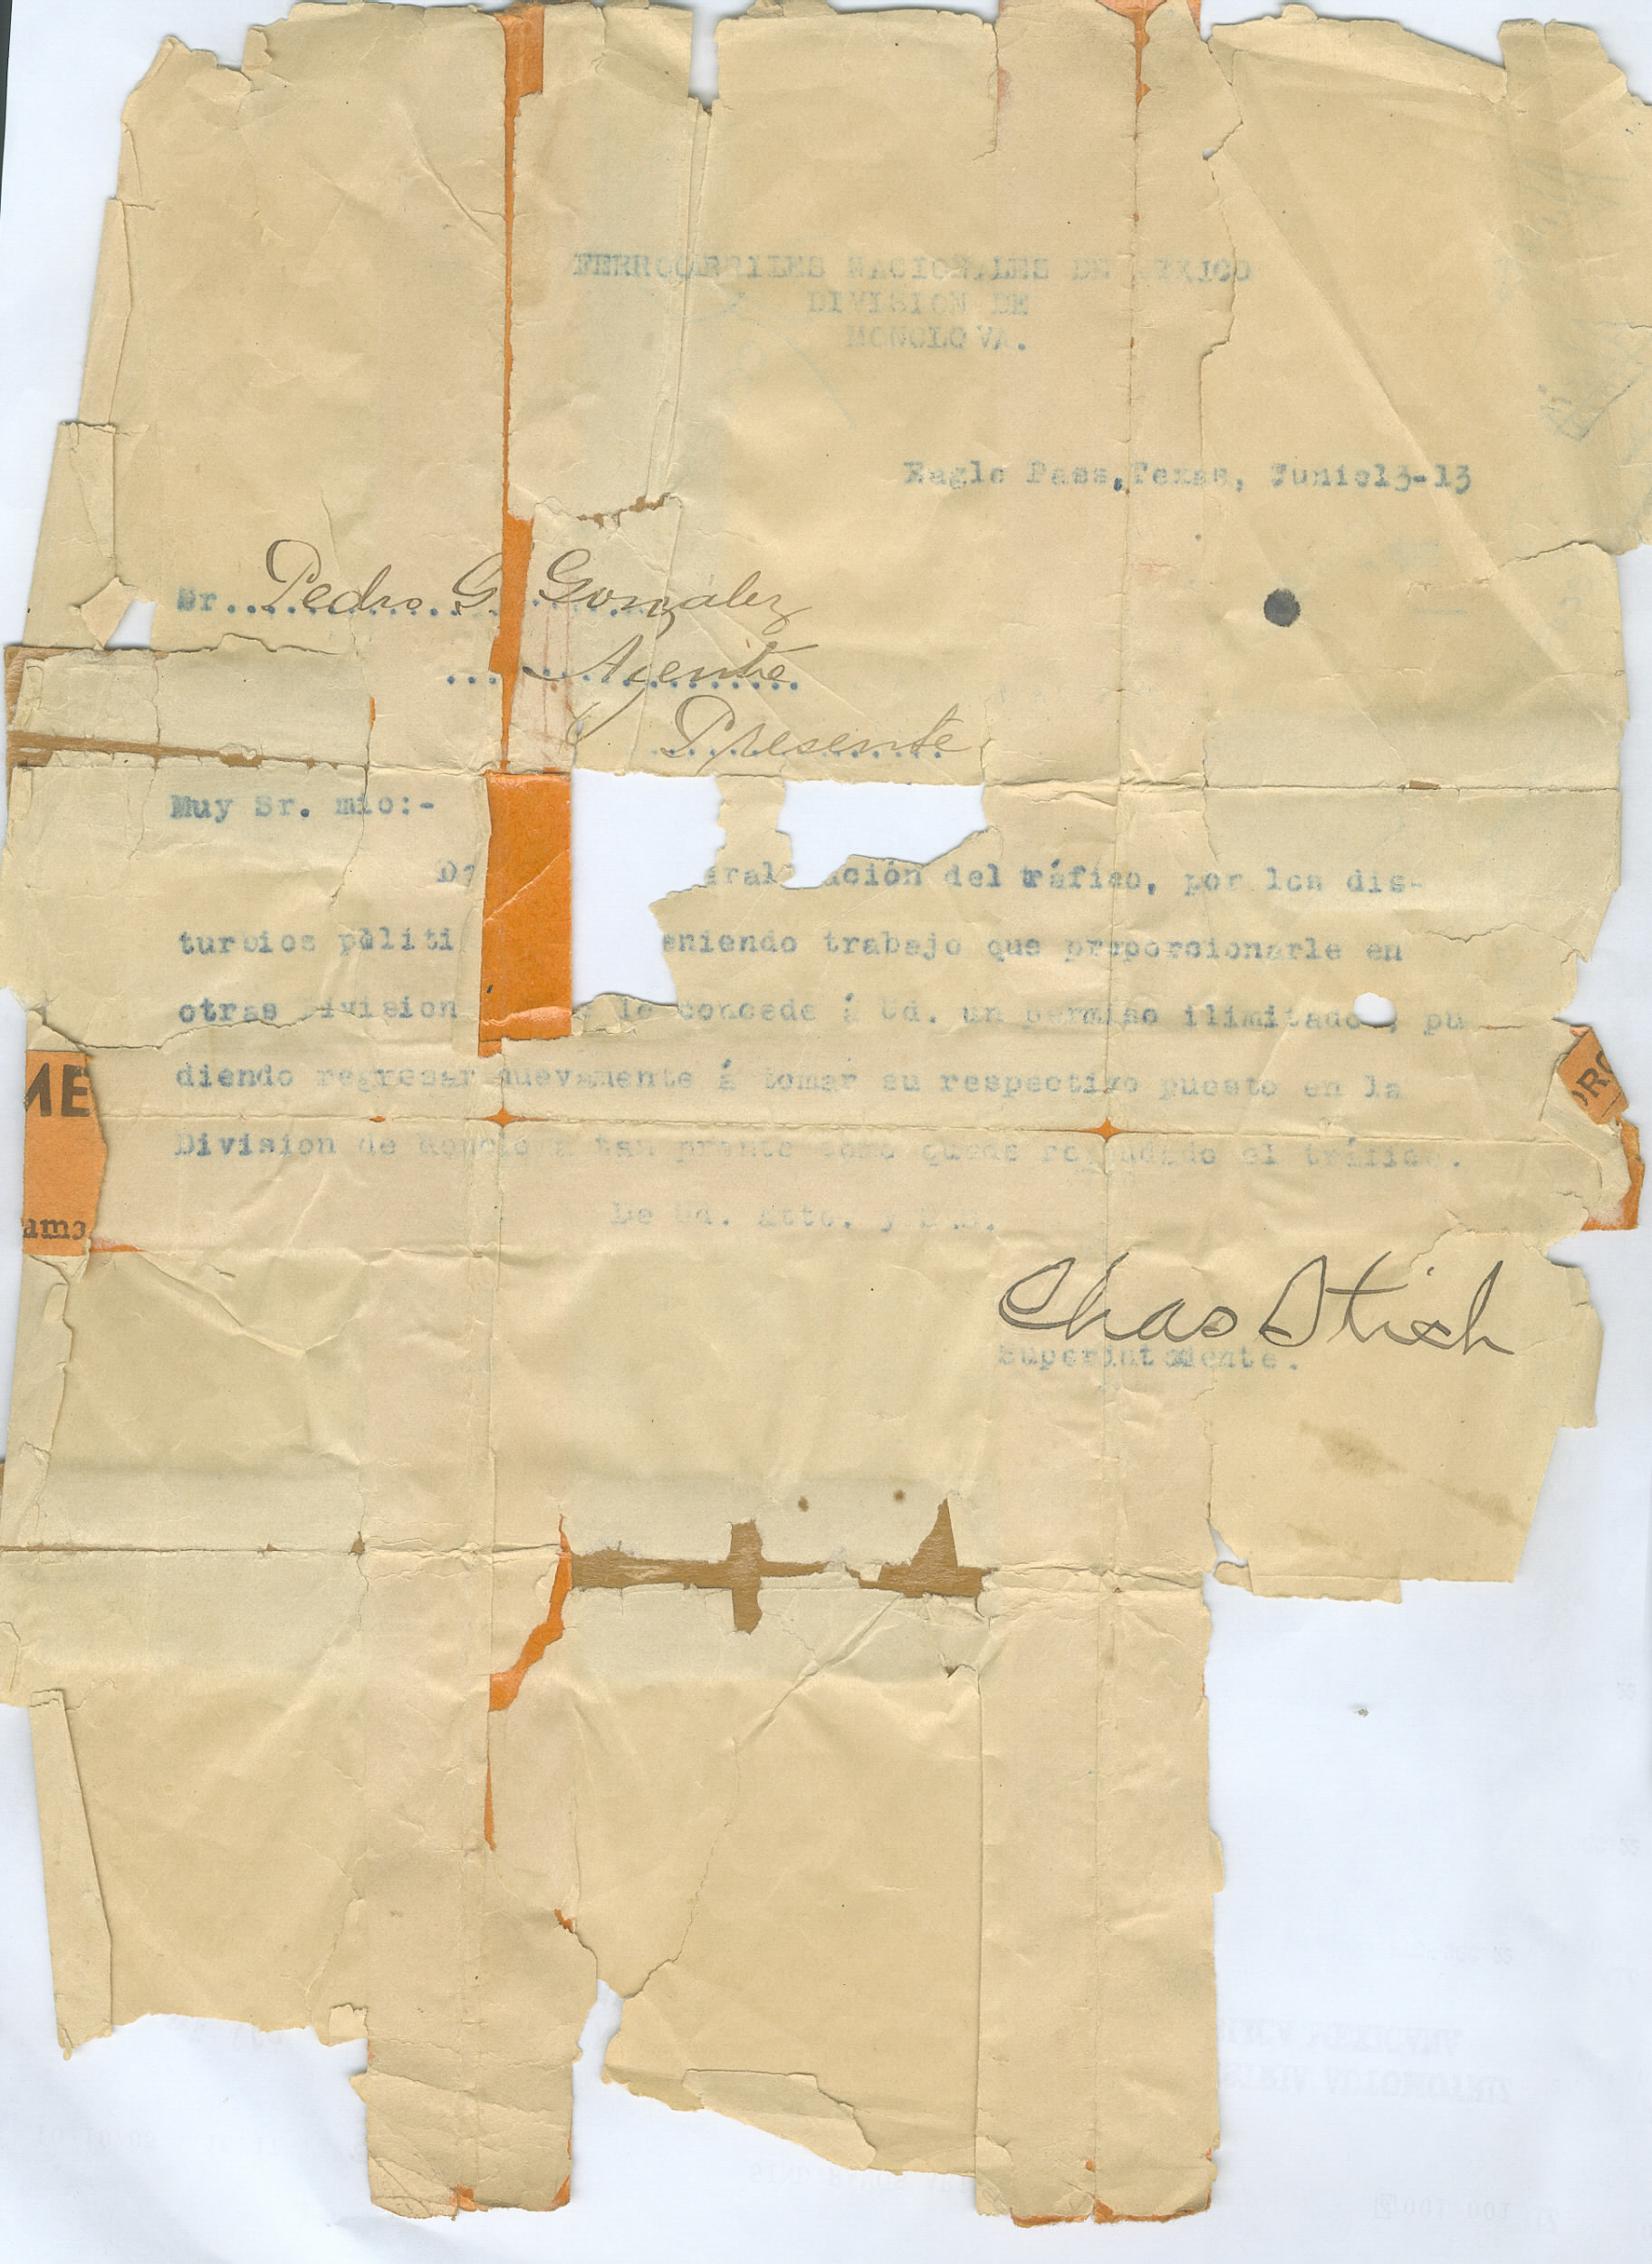 FERROCARRILES NACIONALES DE MEXICO
DIVISION DE
MONCLOVA.
Eagle Pass, Texas, Junio13-13
Sr. Pedro G. Gonzalez
Agente
Presente
Muy Sr. mio:-
del tráfico, por los dis-
turbios politi eniendo trabajo que proporcionarle en
otras Division le concede á Ud. un permiso ilimitado, pu
diendo regresar nuevamente á tomar su respectivo puesto en la
Division de Monclova tan pronto como quede el tráfico.
De Ud. Atto. y S.S.
Chas Stich
Superintendente.
ME